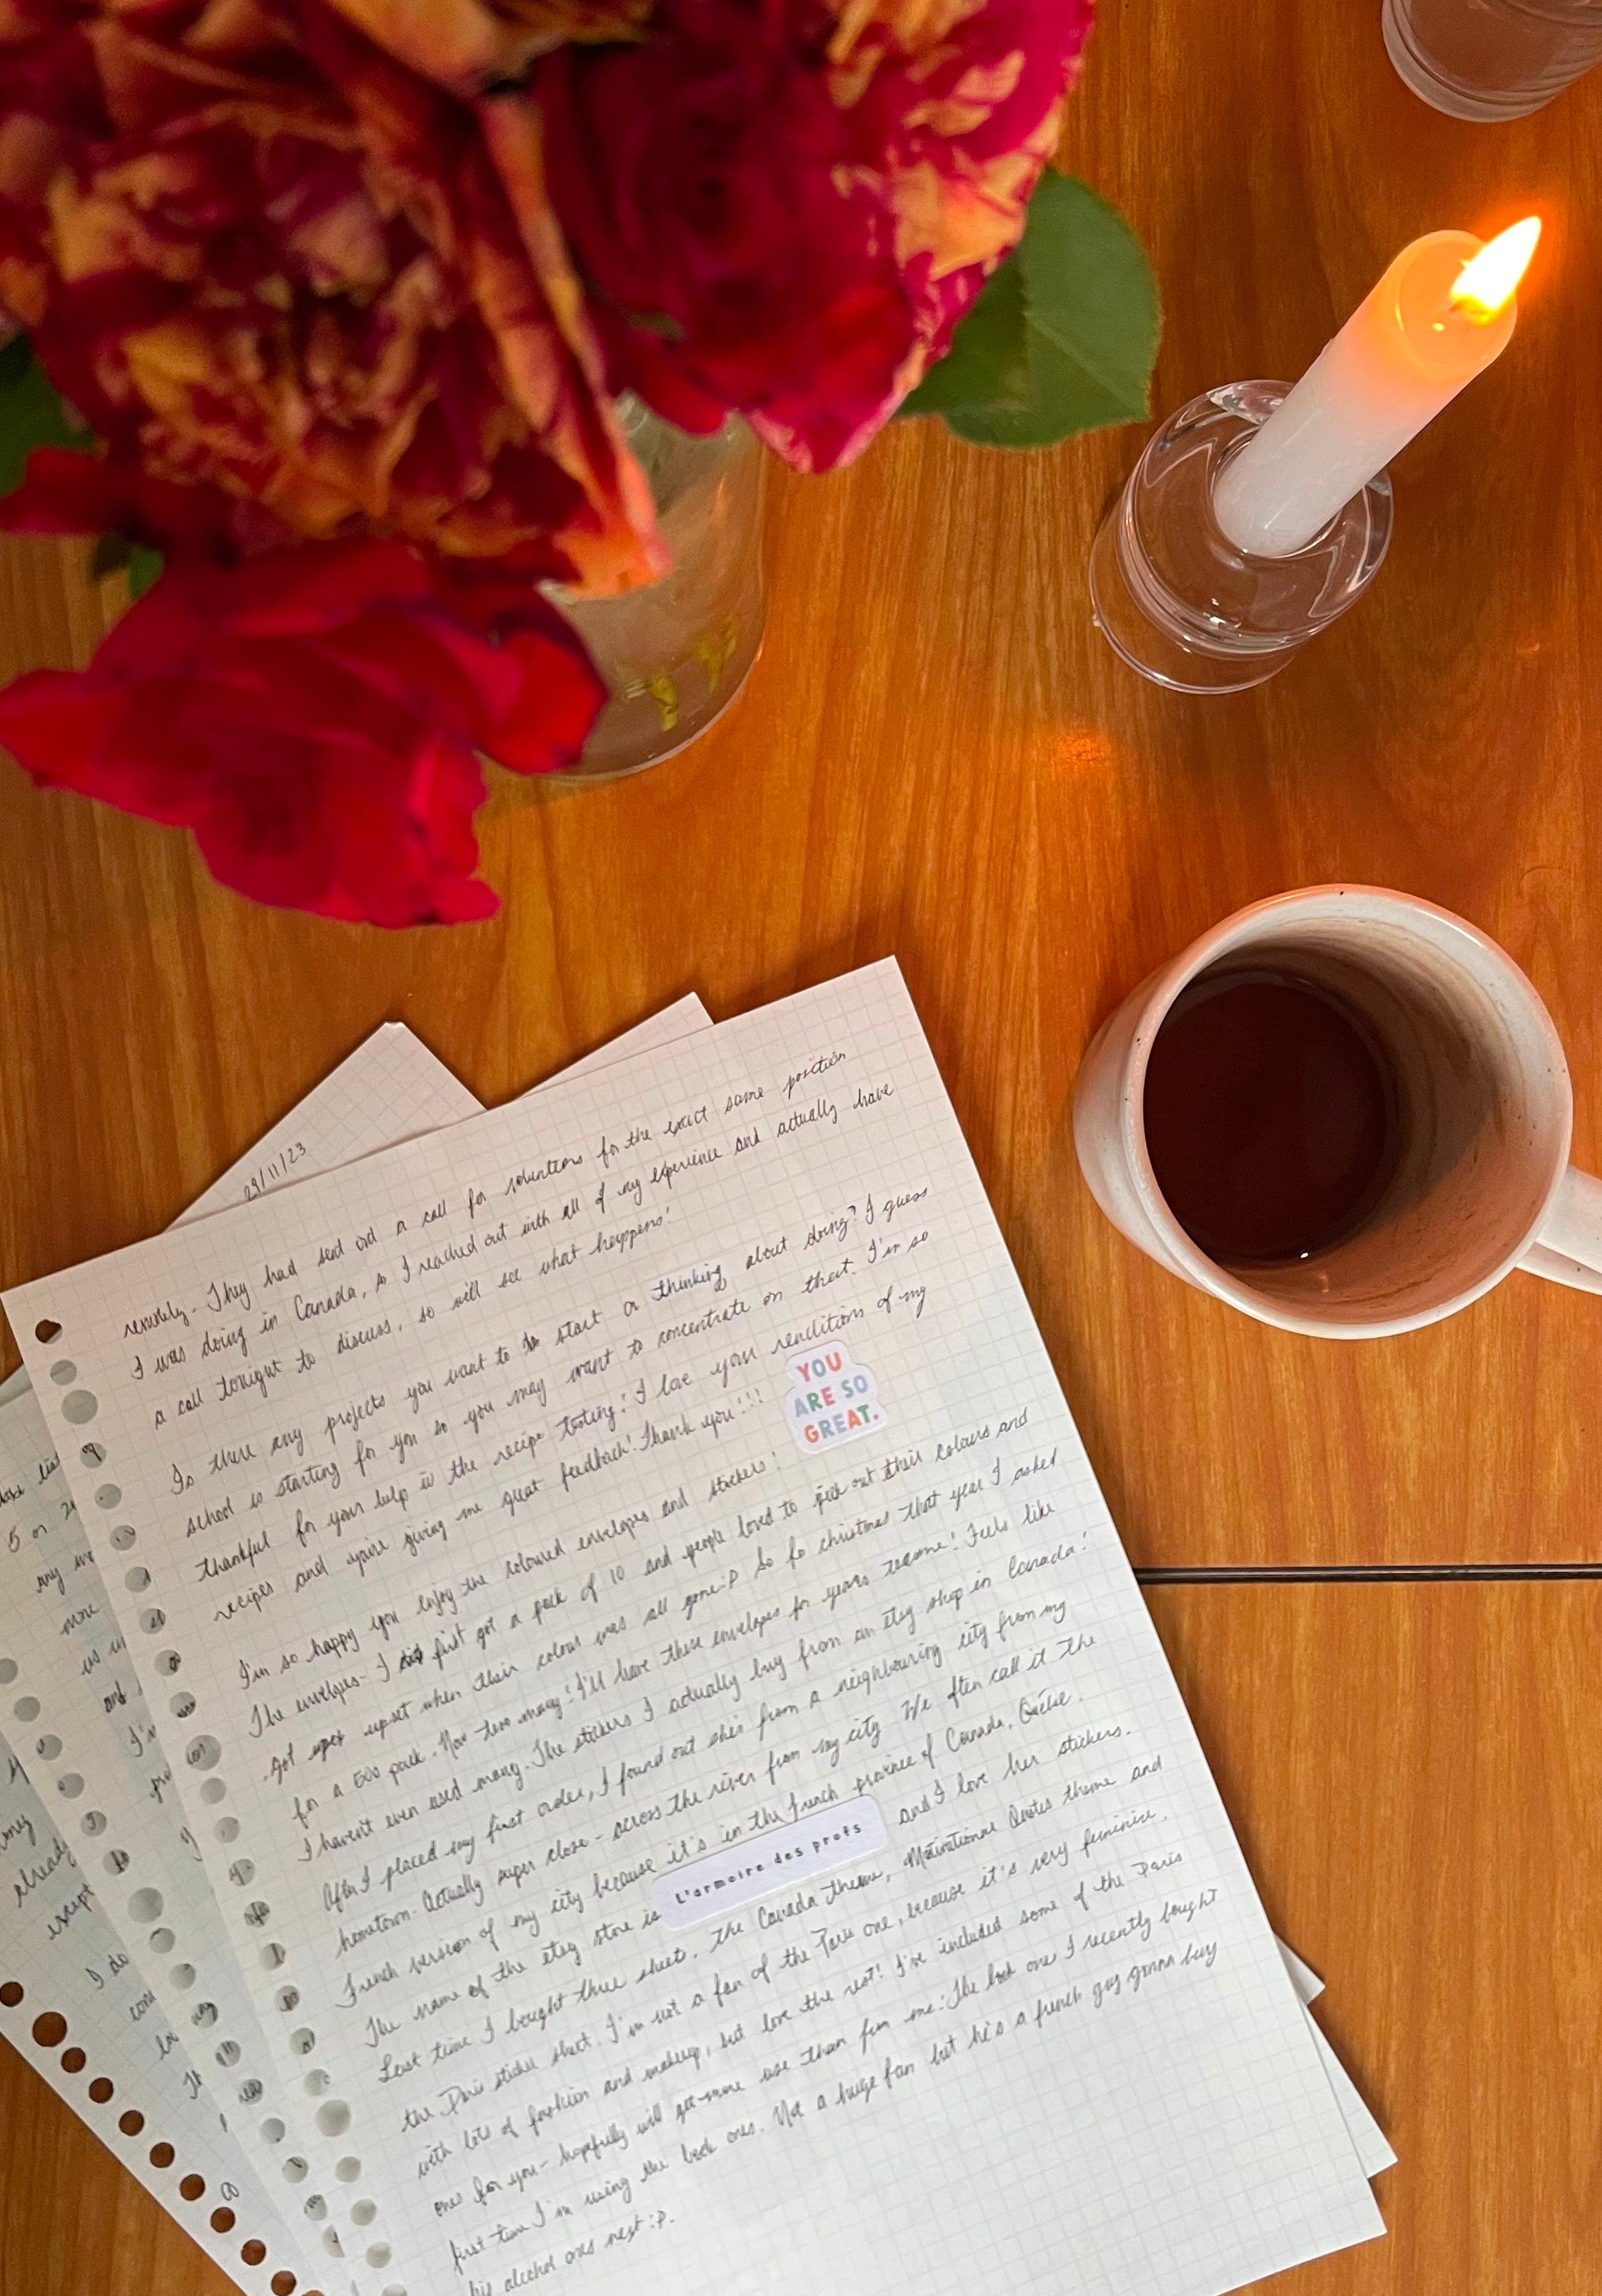 29/11/23
remotely. They had sent out a call for volunteers for the exact same position
I was doing in Canada, so I reached out with all of my experience and actually have
a call tonight to discuss, so will see what happens!
Is there any projects you want to start or thinking about doing? I guess
school is starting for you so you may want to concentrate on that. I'm so
thankful for your help in the recipe testing! I love your rendition of my
recipes and you're giving me great feedback! Thank you!!!
YOU
ARE SO
GREAT.
I'm so happy you enjoy the coloured envelopes and stickers!
The envelopes - I first got a pack of 10 and people loved to pick out their colours and
got upset when their colour was all gone :P So for christmas that year I asked
for a 500 pack. Now too many! I'll have these envelopes for years to come! Feels like
I haven't even used many. The stickers I actually buy from an etsy shop in Canada!
After I placed my first order, I found out she's from a neighbouring city from my
hometown. Actually super close - across the river from my city. We often call it the
French version of my city because it's in the french province of Canada, Québec.
The name of the etsy store is L'armoire des profs and I love her stickers.
Last time I bought three sheet. The Canada theme, Motivational Quotes theme and
the Paris sticker sheet. I'm not a fan of the Paris one, because it's very feminine,
with lots of fashion and makeup, but love the rest! I've included some of the Paris
ones for you - hopefully will get more use than from me! The book one I recently bought
first time I'm using the book ones. Not a huge fan but he's a french guy gonna buy
his alcohol ones next :P.
5 or
any
more
us
and
I'm
already
except
I do